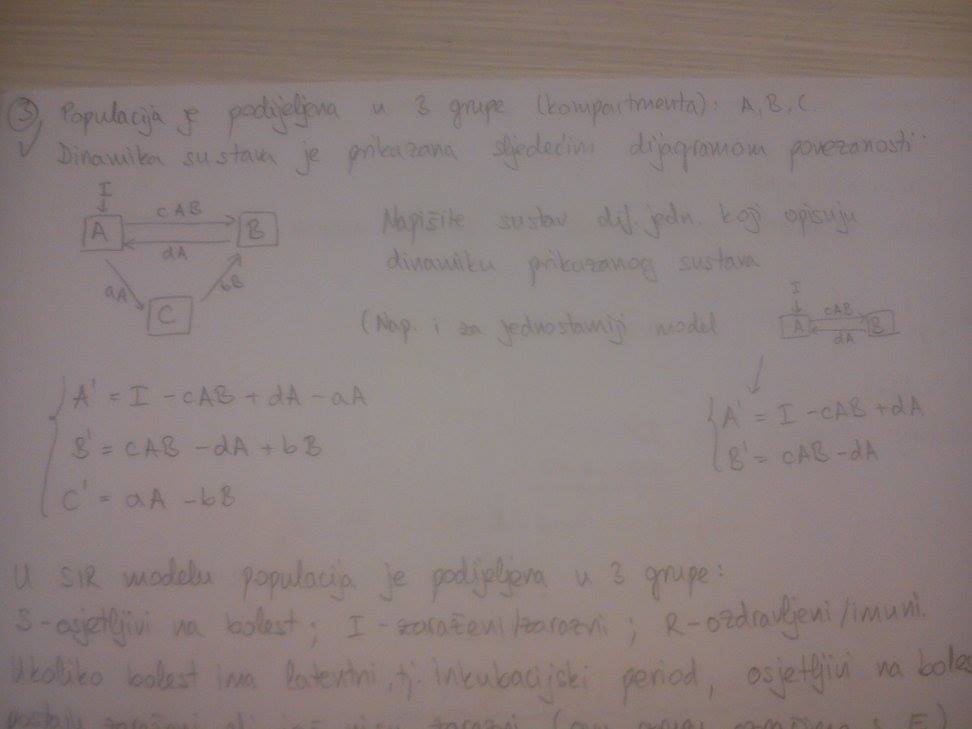 3 Populacija je podijeljena u 3 grupe (kompartmenta): A, B, C.
Dinamika sustava je prikazana sljedećim dijagramom povezanosti:
I
A
cAB
dA
B
aA
bB
C
Napišite sustav dif. jedn. koji opisuju
dinamiku prikazanog sustava
(Nap. i za jednostavniji model
I
A
cAB
dA
B
A' = I - cAB + dA - aA
B' = cAB - dA + bB
C' = aA - bB
A' = I - cAB + dA
B' = cAB - dA
U SIR modelu populacija je podijeljena u 3 grupe:
S-osjetljivi na bolest; I - zaraženi/zarazni; R-ozdravljeni/imuni.
Ukoliko bolest ima latentni, tj. inkubacijski period, osjetljivi na boles